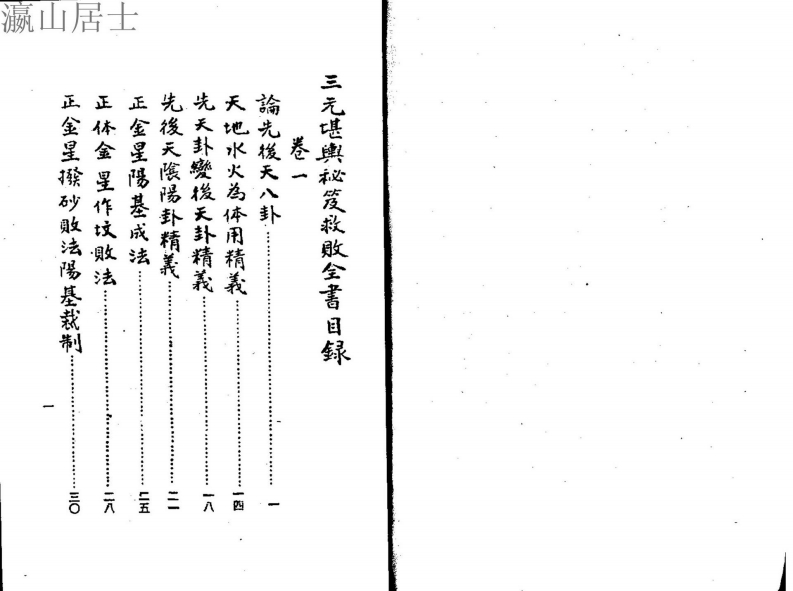 瀛山居士
三元堪輿祕笈救敗全書目録
卷一
論先後天八卦⋯⋯一
天地水火為体用精義⋯⋯一四
先天卦變後天卦精義⋯⋯一八
先後天陰陽卦精義⋯⋯二一
正金星陽基成法⋯⋯二五
正体金星作坟敗法⋯⋯二八
正金星撥砂敗法陽基裁制⋯⋯三〇
一